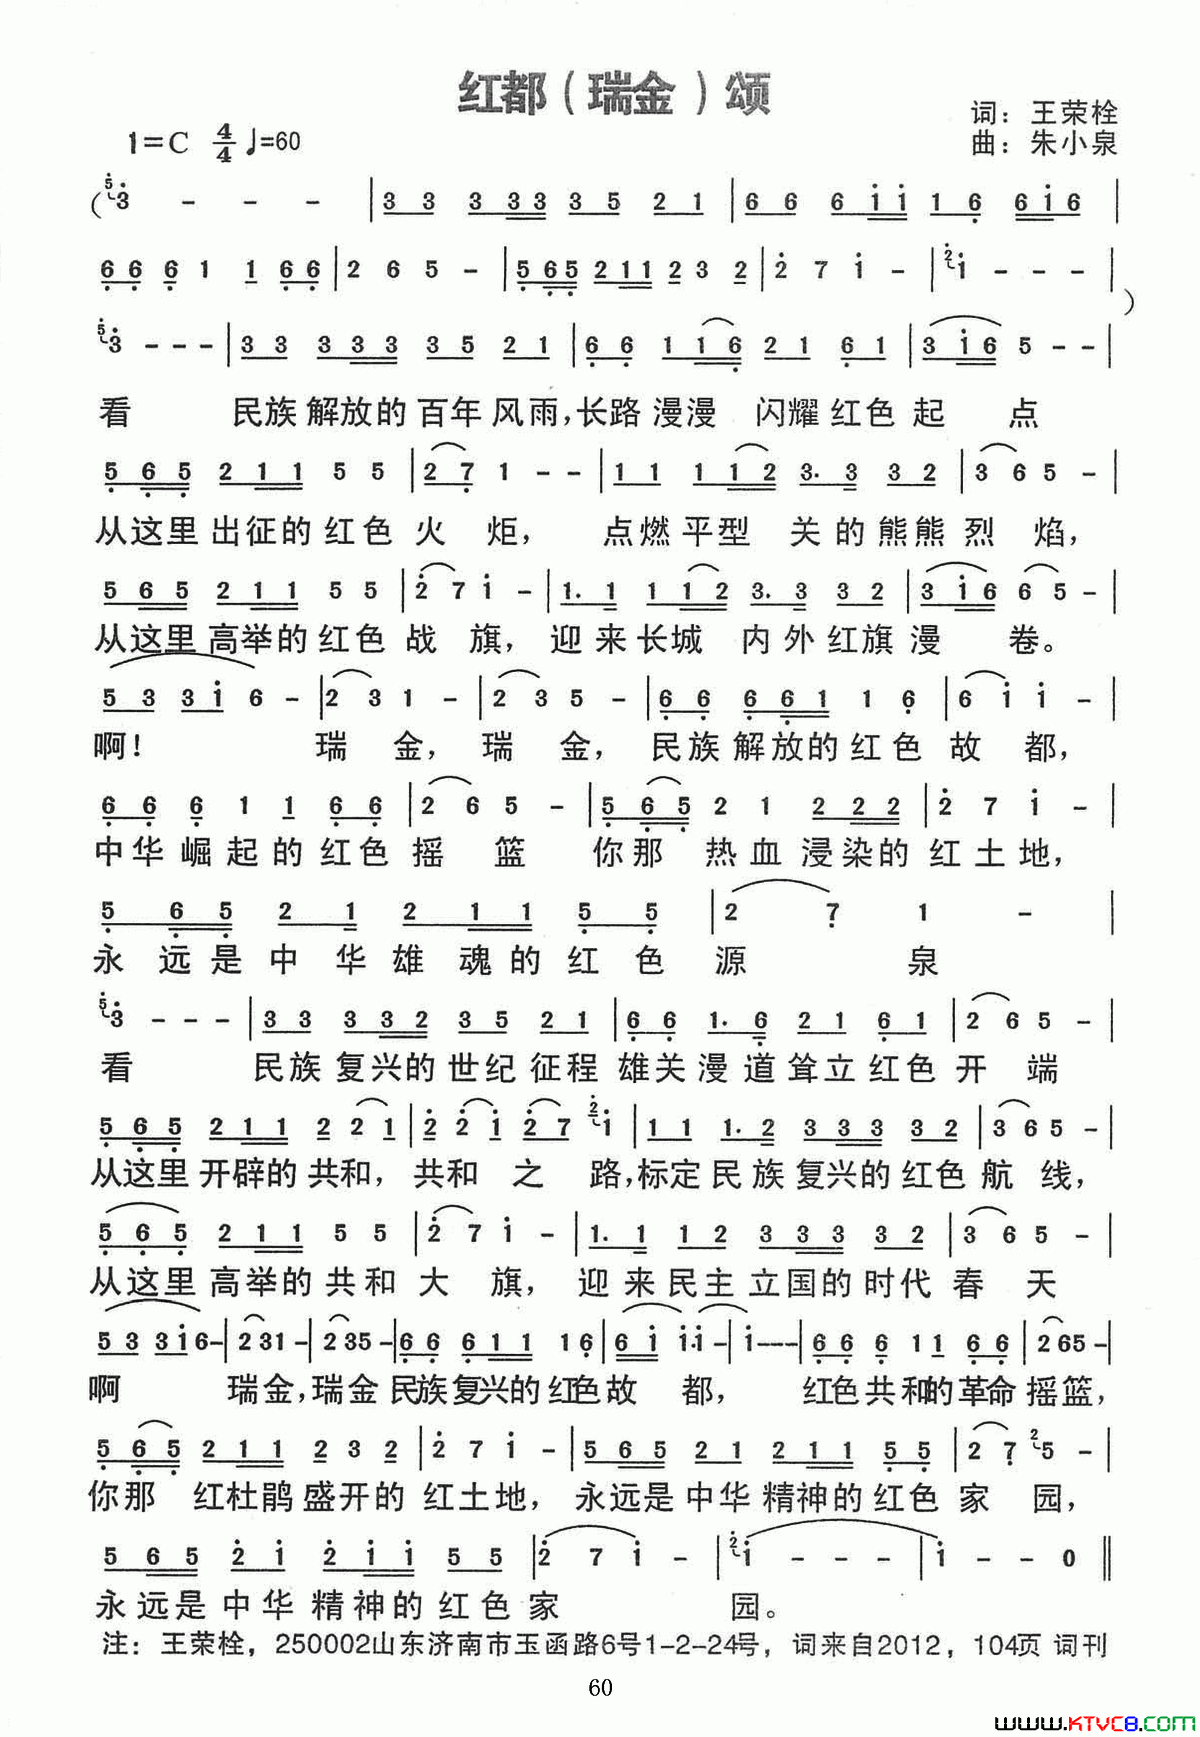 红都（瑞金）颂
词：王荣栓
1=C 4/4 ♩=60
曲：朱小泉
(5 3 - - - | 3 3 3 3 3 3 5 2 1 | 6 6 6 1 1 1 6 6 1 6 |
6 6 6 1 1 6 6 | 2 6 5 - | 5 6 5 2 1 1 2 3 2 | 2 7 1 - | 2 1 - - - | )
5 3 - - - | 3 3 3 3 3 3 5 2 1 | 6 6 1 1 6 2 1 6 1 | 3 1 6 5 - - |
看 民族解放的百年风雨,长路漫漫 闪耀红色起 点
5 6 5 2 1 1 5 5 | 2 7 1 - - | 1 1 1 1 2 3. 3 3 2 | 3 6 5 - |
从这里出征的红色火 炬， 点燃平型 关的熊熊烈 焰，
5 6 5 2 1 1 5 5 | 2 7 1 - | 1. 1 1 1 2 3. 3 3 2 | 3 1 6 6 5 - |
从这里高举的红色战 旗， 迎来长城 内外红旗漫 卷。
5 3 3 1 6 - | 2 3 1 - | 2 3 5 - | 6 6 6 6 1 1 6 | 6 1 1 - |
啊! 瑞 金， 瑞 金， 民族解放的红色故 都，
6 6 6 1 1 6 6 | 2 6 5 - | 5 6 5 2 1 2 2 2 | 2 7 1 - |
中华崛起的红色摇 篮 你那 热血浸染的红土地，
5 6 5 2 1 2 1 1 5 5 | 2 7 1 - |
永远是中华雄魂的红色源 泉
5 3 - - - | 3 3 3 3 2 3 5 2 1 | 6 6 1. 6 2 1 6 1 | 2 6 5 - |
看 民族复兴的世纪征程 雄关漫道耸立红色开 端
5 6 5 2 1 1 2 2 1 | 2 2 1 2 7 2 1 | 1 1 1. 2 3 3 3 3 2 | 3 6 5 - |
从这里开辟的共和，共和 之 路,标定民族复兴的红色航 线，
5 6 5 2 1 1 5 5 | 2 7 1 - | 1. 1 1 2 3 3 3 3 2 | 3 6 5 - |
从这里高举的共和大 旗， 迎来民主立国的时代春 天
5 3 3 1 6 - | 2 3 1 - | 2 3 5 - | 6 6 6 1 1 1 6 | 6 1 1·1 - | 1 - - - - | 6 6 6 1 1 6 6 | 2 6 5 - |
啊 瑞金，瑞金民族复兴的红色故 都， 红色共和的革命摇篮，
5 6 5 2 1 1 2 3 2 | 2 7 1 - | 5 6 5 2 1 2 1 1 5 5 | 2 7 2 5 - |
你那 红杜鹃盛开的红土地，永远是中华精神的红色家 园，
5 6 5 2 1 2 1 1 5 5 | 2 7 1 - | 2 1 - - - | 1 - - 0 ‖
永远是中华精神的红色家 园。
注：王荣栓，250002山东济南市玉函路6号1-2-24号，词来自2012，104页 词刊
60
www.KTVC8.COM